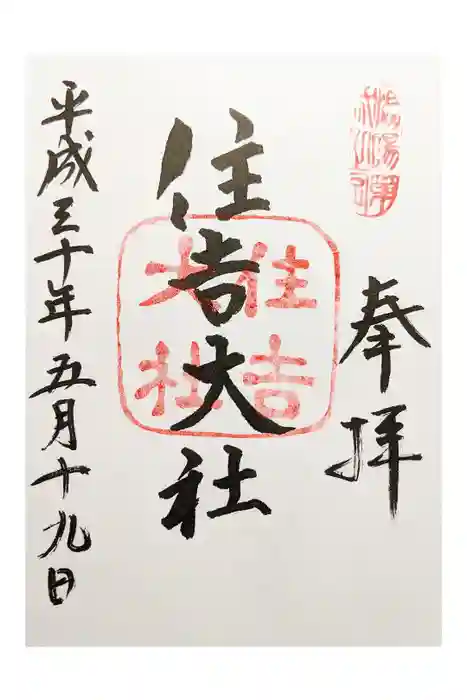 奉拝
住吉大社
住吉
大社
平成三十年五月十九日